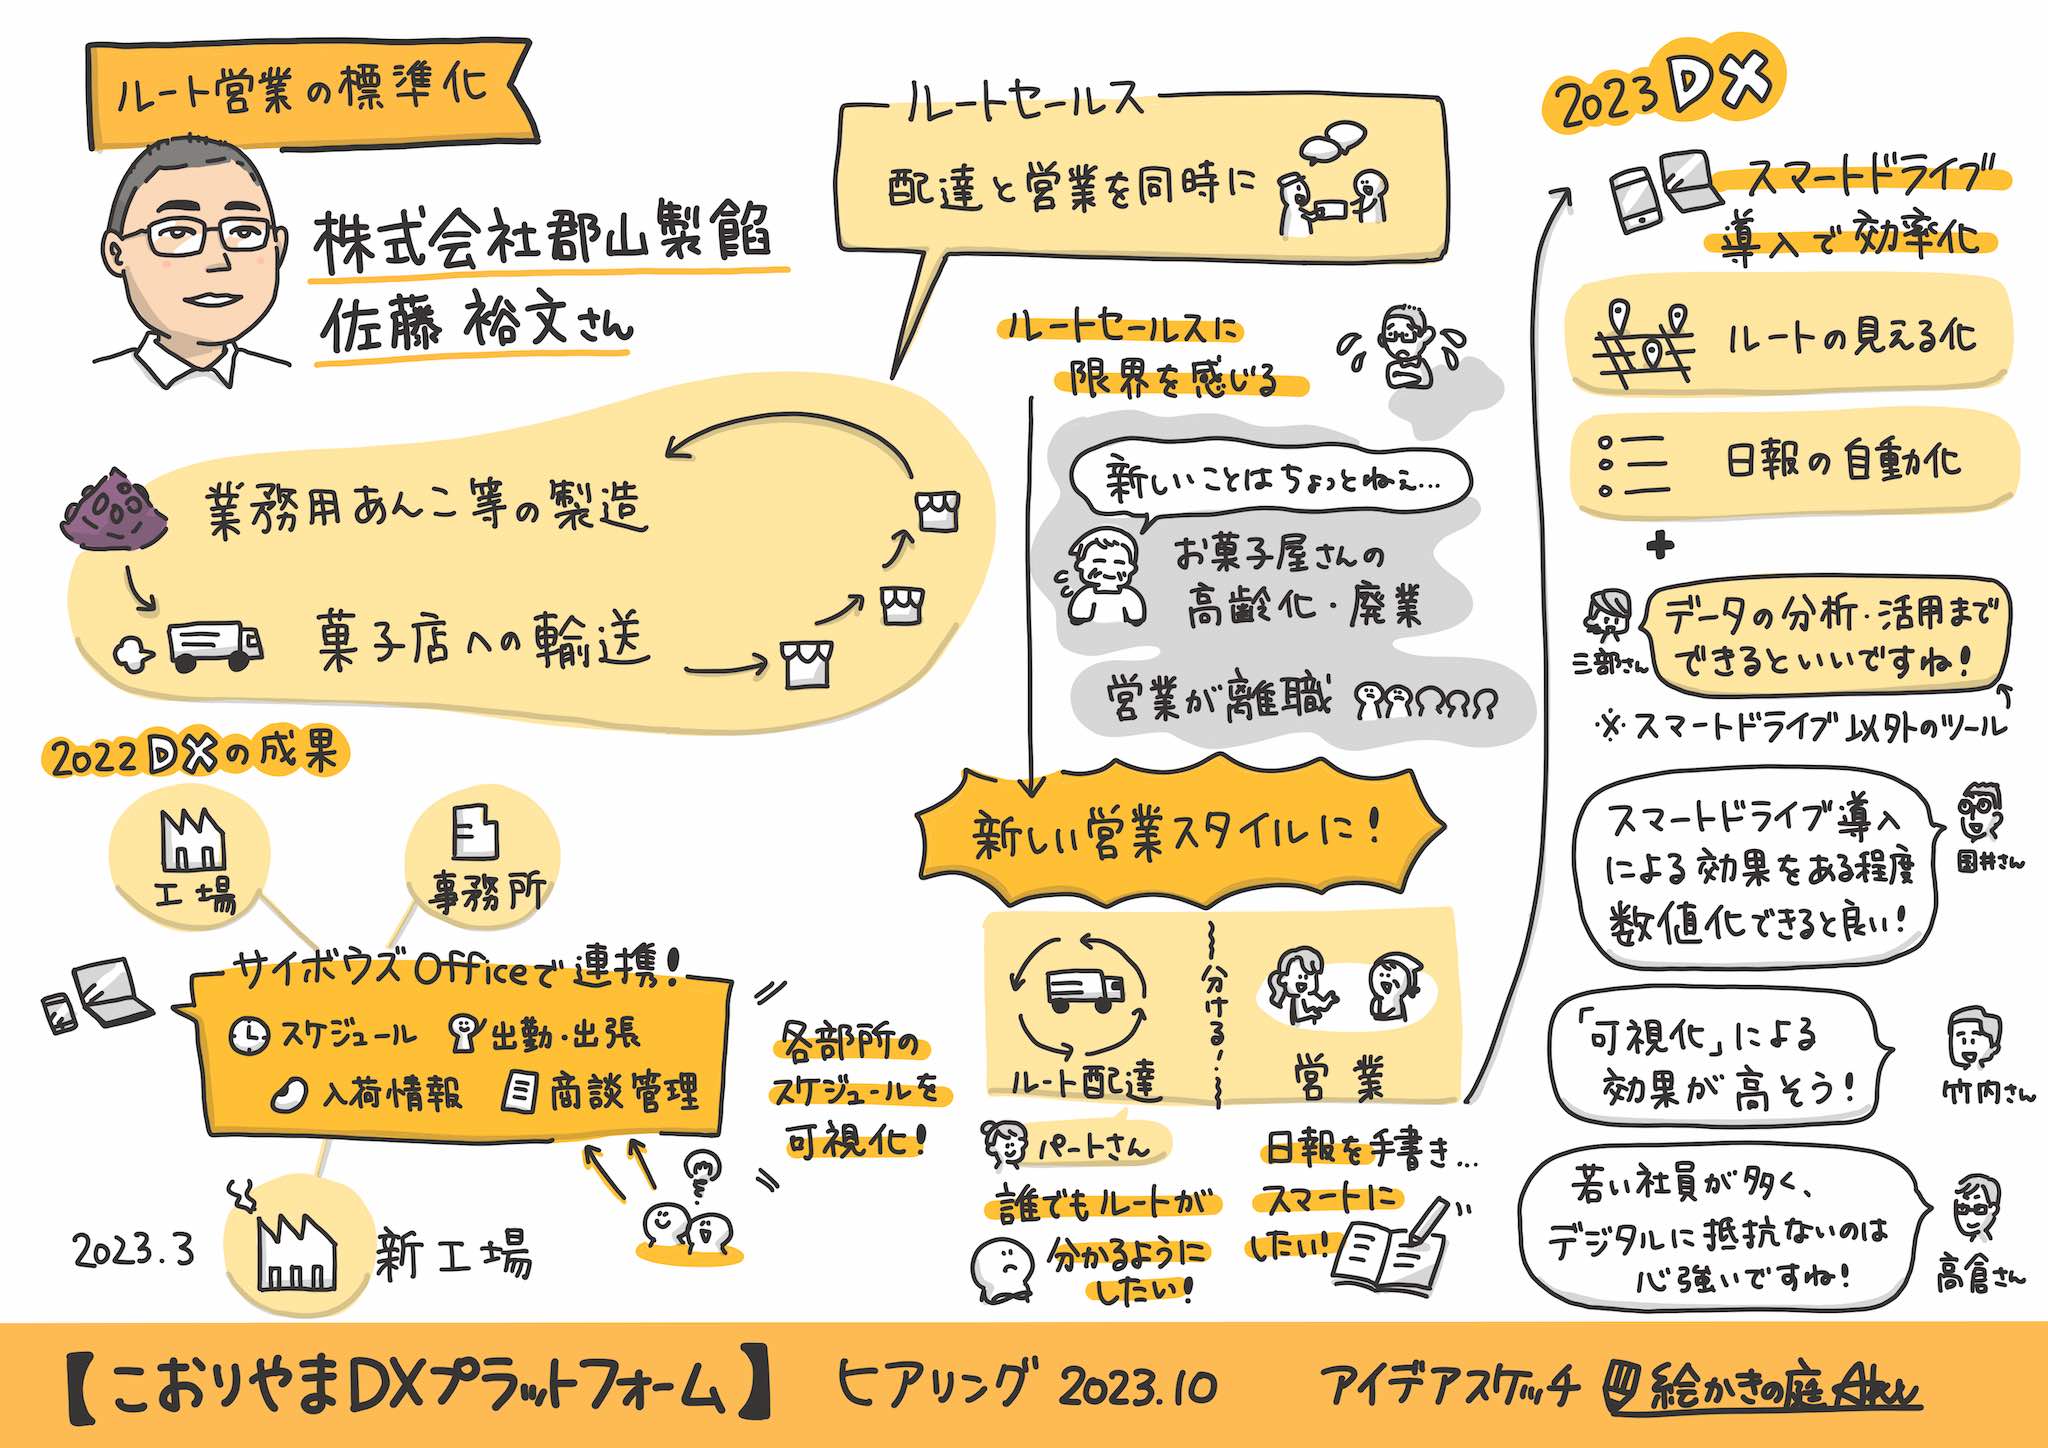 ルート営業の標準化
株式会社郡山製餡
佐藤 裕文さん
ルートセールス
配達と営業を同時に
業務用あんこ等の製造
菓子店への輸送
2022DXの成果
工場
事務所
サイボウズOfficeで連携!
スケジュール
出勤・出張
入荷情報
商談管理
2023.3
新工場
各部所の
スケジュールを
可視化!
ルートセールスに
限界を感じる
新しいことはちょっとねぇ…
お菓子屋さんの
高齢化・廃業
営業が離職
新しい営業スタイルに!
ルート配達
〜分ける!〜
営業
パートさん
誰でもルートが
分かるように
したい!
日報を手書き…
スマートに
したい!
2023DX
スマートドライブ
導入で効率化
ルートの見える化
日報の自動化
+
三部さん
データの分析・活用まで
できるといいですね!
※スマートドライブ以外のツール
スマートドライブ導入
による効果をある程度
数値化できると良い!
国井さん
「可視化」による
効果が高そう!
竹内さん
若い社員が多く、
デジタルに抵抗ないのは
心強いですね!
高倉さん
【こおりやまDXプラットフォーム】 ヒアリング 2023.10 アイデアスケッチ 絵かきの庭 Aku